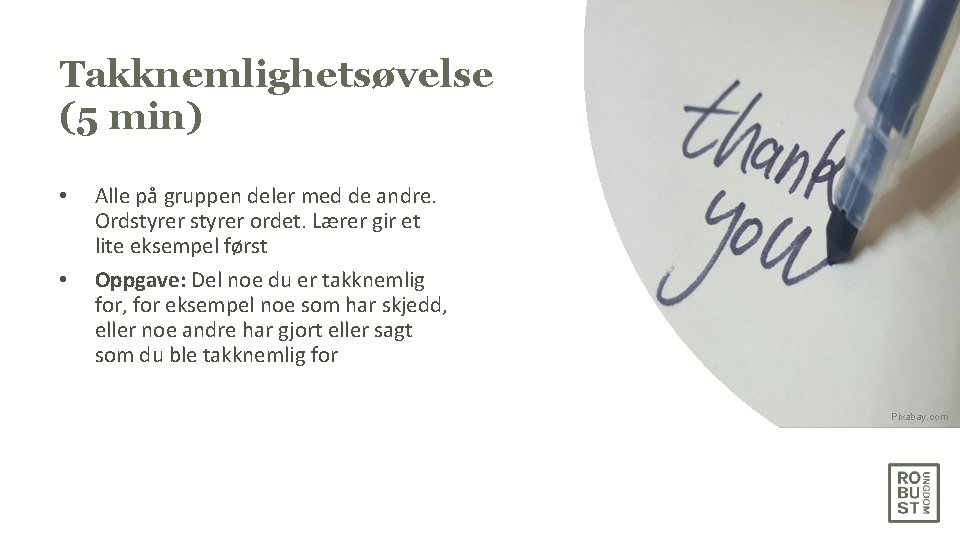 Takknemlighetsøvelse
(5 min)
• Alle på gruppen deler med de andre.
Ordstyrer styrer ordet. Lærer gir et
lite eksempel først
• Oppgave: Del noe du er takknemlig
for, for eksempel noe som har skjedd,
eller noe andre har gjort eller sagt
som du ble takknemlig for
thank
you
Pixabay.com
RO
BU
ST
UNGDOM